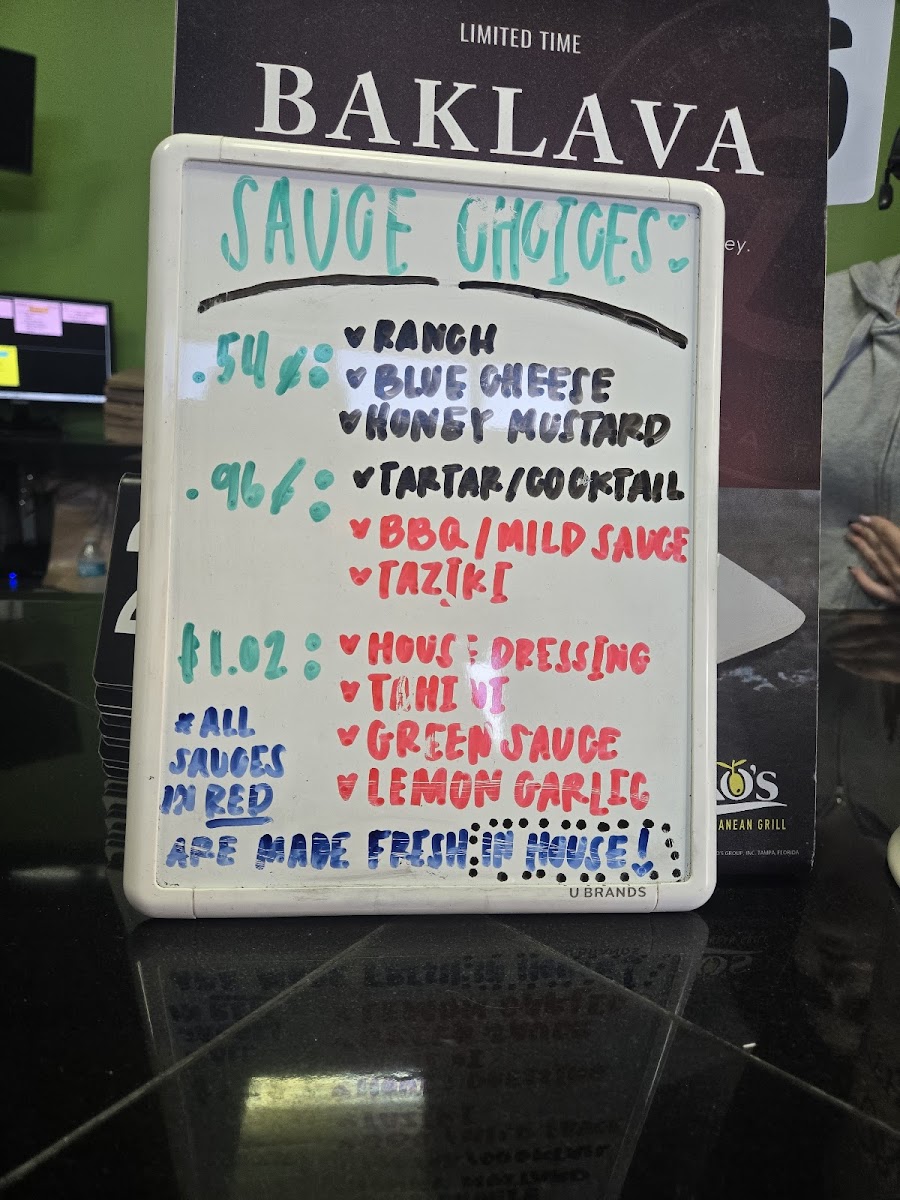 LIMITED TIME
BAKLAVA
ey.
SAUCE CHOICES:
.54¢: RANCH
BLUE CHEESE
HONEY MUSTARD
.96¢: TARTAR/COCKTAIL
BBQ/MILD SAUCE
TAZIKI
$1.02: HOUSE DRESSING
TAHINI
GREEN SAUCE
LEMON GARLIC
*ALL
SAUCES
IN RED
ARE MADE FRESH IN HOUSE!
U BRANDS
O'S
ANEAN GRILL
O'S GROUP, INC. TAMPA, FLORIDA